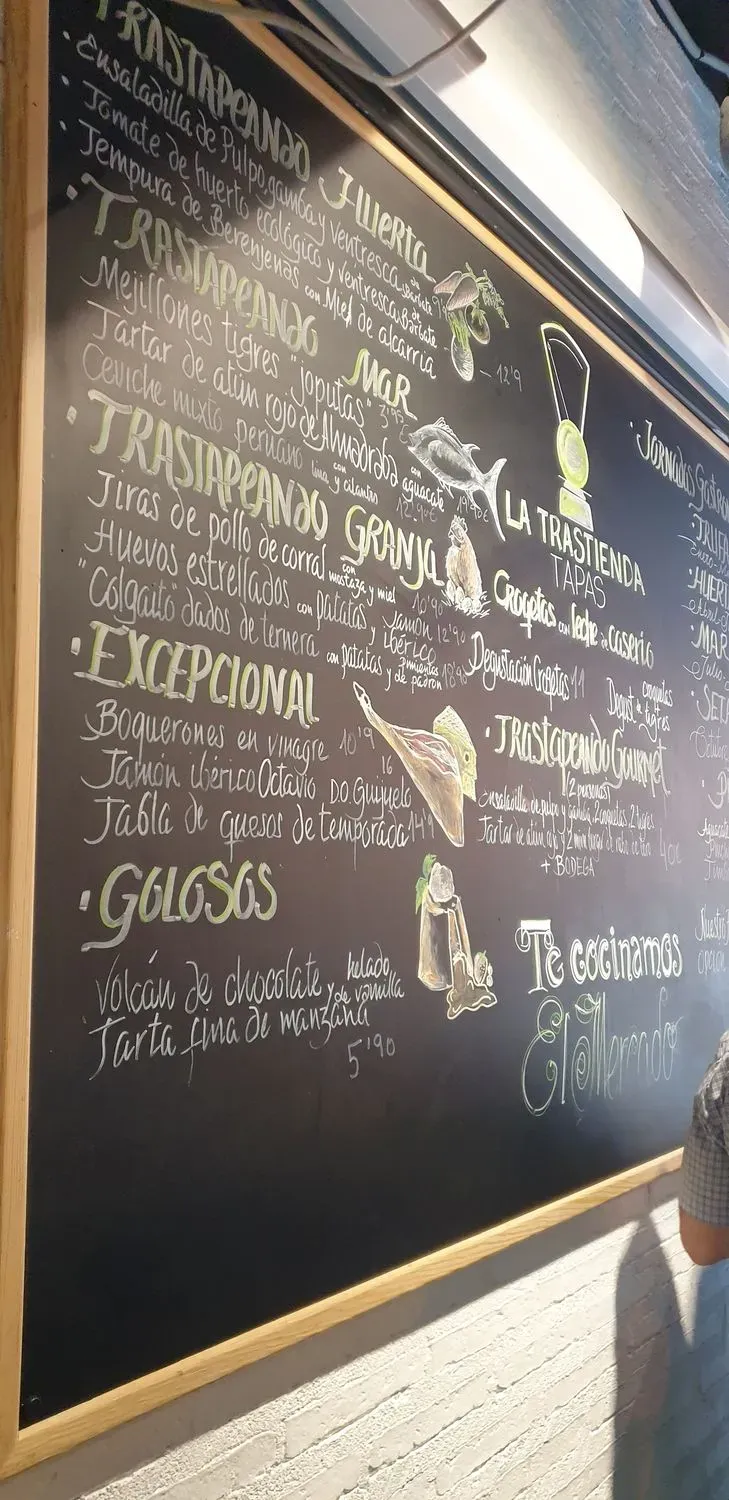 TRASTAPEANDO HUERTA
· Ensaladilla de Pulpo, gamba y ventresca de Barbate
· Tomate de huerto ecológico y ventresca de Barbate
· Tempura de Berenjenas con Miel de alcarria - 12'9
· TRASTAPEANDO MAR
Mejillones tigres "joputas" 3'95
Tartar de atún rojo de Almadraba con aguacate 19'90€
Ceviche mixto peruano con lima y cilantro 12'90€
· TRASTAPEANDO GRANJA
Tiras de pollo de corral con mostaza y miel 10'90
Huevos estrellados con patatas y Jamón ibérico 12'90
"Colgaito" dados de ternera con patatas y pimientos de padron
· EXCEPCIONAL
Boquerones en vinagre 10'9
Jamón ibérico Octavio D.O. Guijuelo 16
Tabla de quesos de temporada 14'9
· GOLOSOS
Volcán de chocolate y helado de vainilla
Tarta fina de manzana
5'90
LA TRASTIENDA
TAPAS
Croquetas con leche de caserio
Degustación Croquetas 11
Degust croquetas y tigres
· TRASTAPEANDO Gourmet
(2 personas)
Ensaladilla de pulpo y gamba, 2 croquetas, 2 tigres
Tartar de atún rojo y 2 mini
+ BODEGA
Te cocinamos
El Mercado
· JORNADAS Gastron
· TRUFA
Enero
· HUERT
Abril
· MAR
Julio
· SETA
Octubre